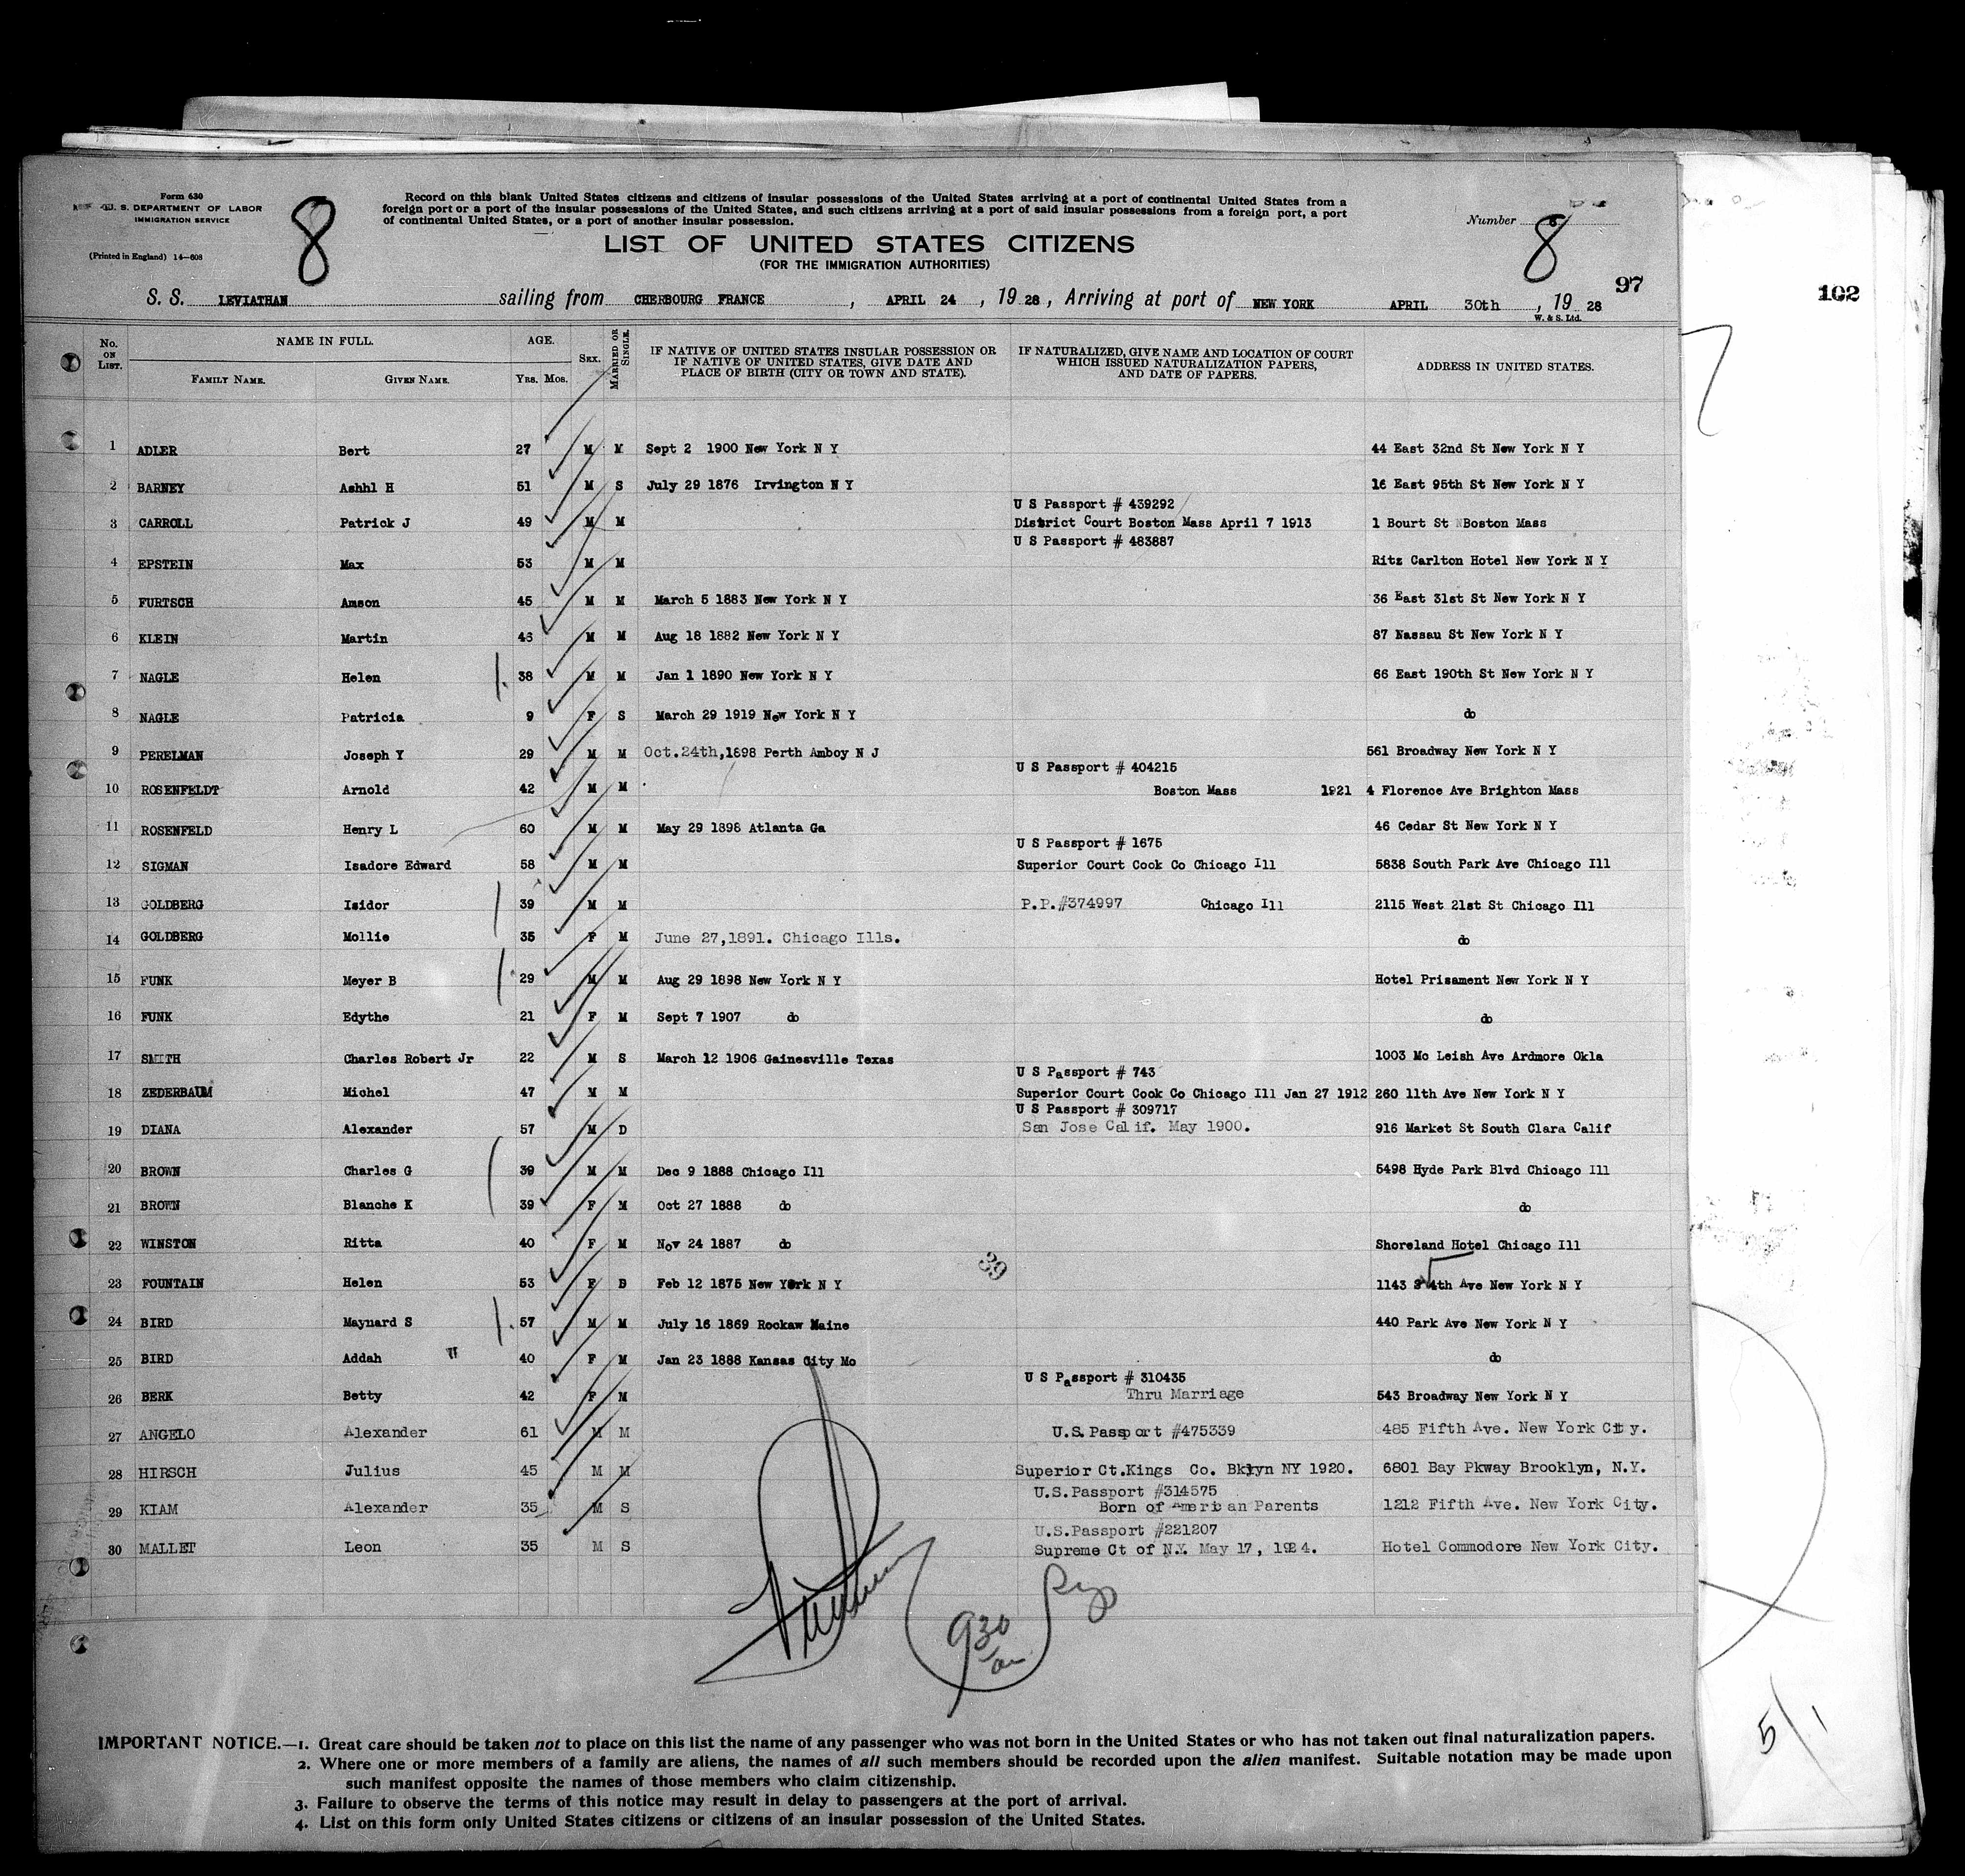 Form 630
U. S. DEPARTMENT OF LABOR
IMMIGRATION SERVICE
(Printed in England) 14—608
8
Record on this blank United States citizens and citizens of insular possessions of the United States arriving at a port of continental United States from a
foreign port or a port of the insular possessions of the United States, and such citizens arriving at a port of said insular possessions from a foreign port, a port
of continental United States, or a port of another insular possession.
Number 8
8
LIST OF UNITED STATES CITIZENS
(FOR THE IMMIGRATION AUTHORITIES)
97
102
S. S. LEVIATHAN sailing from CHERBOURG FRANCE , APRIL 24 , 19 28 , Arriving at port of NEW YORK APRIL 30th , 19 28
W. & S. Ltd.
No. ON LIST. NAME IN FULL. FAMILY NAME. GIVEN NAME. AGE. YRS. MOS. SEX. MARRIED OR SINGLE. IF NATIVE OF UNITED STATES INSULAR POSSESSION OR IF NATIVE OF UNITED STATES, GIVE DATE AND PLACE OF BIRTH (CITY OR TOWN AND STATE). IF NATURALIZED, GIVE NAME AND LOCATION OF COURT WHICH ISSUED NATURALIZATION PAPERS, AND DATE OF PAPERS. ADDRESS IN UNITED STATES.
1 ADLER Bert 27 M M Sept 2 1900 New York N Y 44 East 32nd St New York N Y
2 BARNEY Ashhl H 51 M S July 29 1876 Irvington N Y 16 East 95th St New York N Y
U S Passport # 439292
3 CARROLL Patrick J 49 M M District Court Boston Mass April 7 1913 1 Bourt St Boston Mass
U S Passport # 483887
4 EPSTEIN Max 53 M M Ritz Carlton Hotel New York N Y
5 FURTSCH Amson 45 M M March 5 1883 New York N Y 36 East 31st St New York N Y
6 KLEIN Martin M M Aug 18 1882 New York N Y 87 Nassau St New York N Y
7 NAGLE Helen 38 M M Jan 1 1890 New York N Y 66 East 190th St New York N Y
8 NAGLE Patricia 9 F S March 29 1919 New York N Y do
9 PERELMAN Joseph Y 29 M M Oct.24th,1898 Perth Amboy N J 561 Broadway New York N Y
U S Passport # 404215
10 ROSENFELDT Arnold 42 M M Boston Mass 1921 4 Florence Ave Brighton Mass
11 ROSENFELD Henry L 60 M M May 29 1898 Atlanta Ga 46 Cedar St New York N Y
U S Passport # 1675
12 SIGMAN Isadore Edward 58 M M Superior Court Cook Co Chicago Ill 5838 South Park Ave Chicago Ill
13 GOLDBERG Isidor 39 M M P.P.#374997 Chicago Ill 2115 West 21st St Chicago Ill
14 GOLDBERG Mollie 35 F M June 27,1891. Chicago Ills. do
15 FUNK Meyer B 29 M M Aug 29 1898 New York N Y Hotel Prisament New York N Y
16 FUNK Edythe 21 F M Sept 7 1907 do do
17 SMITH Charles Robert Jr 22 M S March 12 1906 Gainesville Texas 1003 Mc Leish Ave Ardmore Okla
U S Passport # 743
18 ZEDERBAUM Michel 47 M M Superior Court Cook Co Chicago Ill Jan 27 1912 260 11th Ave New York N Y
U S Passport # 309717
19 DIANA Alexander 57 M D San Jose Calif. May 1900. 916 Market St South Clara Calif
20 BROWN Charles G 39 M M Dec 9 1888 Chicago Ill 5498 Hyde Park Blvd Chicago Ill
21 BROWN Blanche K 39 F M Oct 27 1888 do do
22 WINSTON Ritta 40 F M Nov 24 1887 do Shoreland Hotel Chicago Ill
39
23 FOUNTAIN Helen 53 F D Feb 12 1875 New York N Y 1143 4th Ave New York N Y
24 BIRD Maynard S 57 M M July 16 1869 Rockaw Maine 440 Park Ave New York N Y
25 BIRD Addah " 40 F M Jan 23 1888 Kansas City Mo do
U S Passport # 310435
26 BERK Betty 42 F M Thru Marriage 543 Broadway New York N Y
27 ANGELO Alexander 61 M M U.S. Passport #475339 485 Fifth Ave. New York City.
28 HIRSCH Julius 45 M M Superior Ct.Kings Co. Bklyn NY 1920. 6801 Bay Pkway Brooklyn, N.Y.
U.S.Passport #314575
29 KIAM Alexander 35 M S Born of American Parents 1212 Fifth Ave. New York City.
U.S.Passport #221207
30 MALLET Leon 35 M S Supreme Ct of N.Y. May 17, 1924. Hotel Commodore New York City.
930
am
5/1
IMPORTANT NOTICE.—1. Great care should be taken not to place on this list the name of any passenger who was not born in the United States or who has not taken out final naturalization papers.
2. Where one or more members of a family are aliens, the names of all such members should be recorded upon the alien manifest. Suitable notation may be made upon
such manifest opposite the names of those members who claim citizenship.
3. Failure to observe the terms of this notice may result in delay to passengers at the port of arrival.
4. List on this form only United States citizens or citizens of an insular possession of the United States.